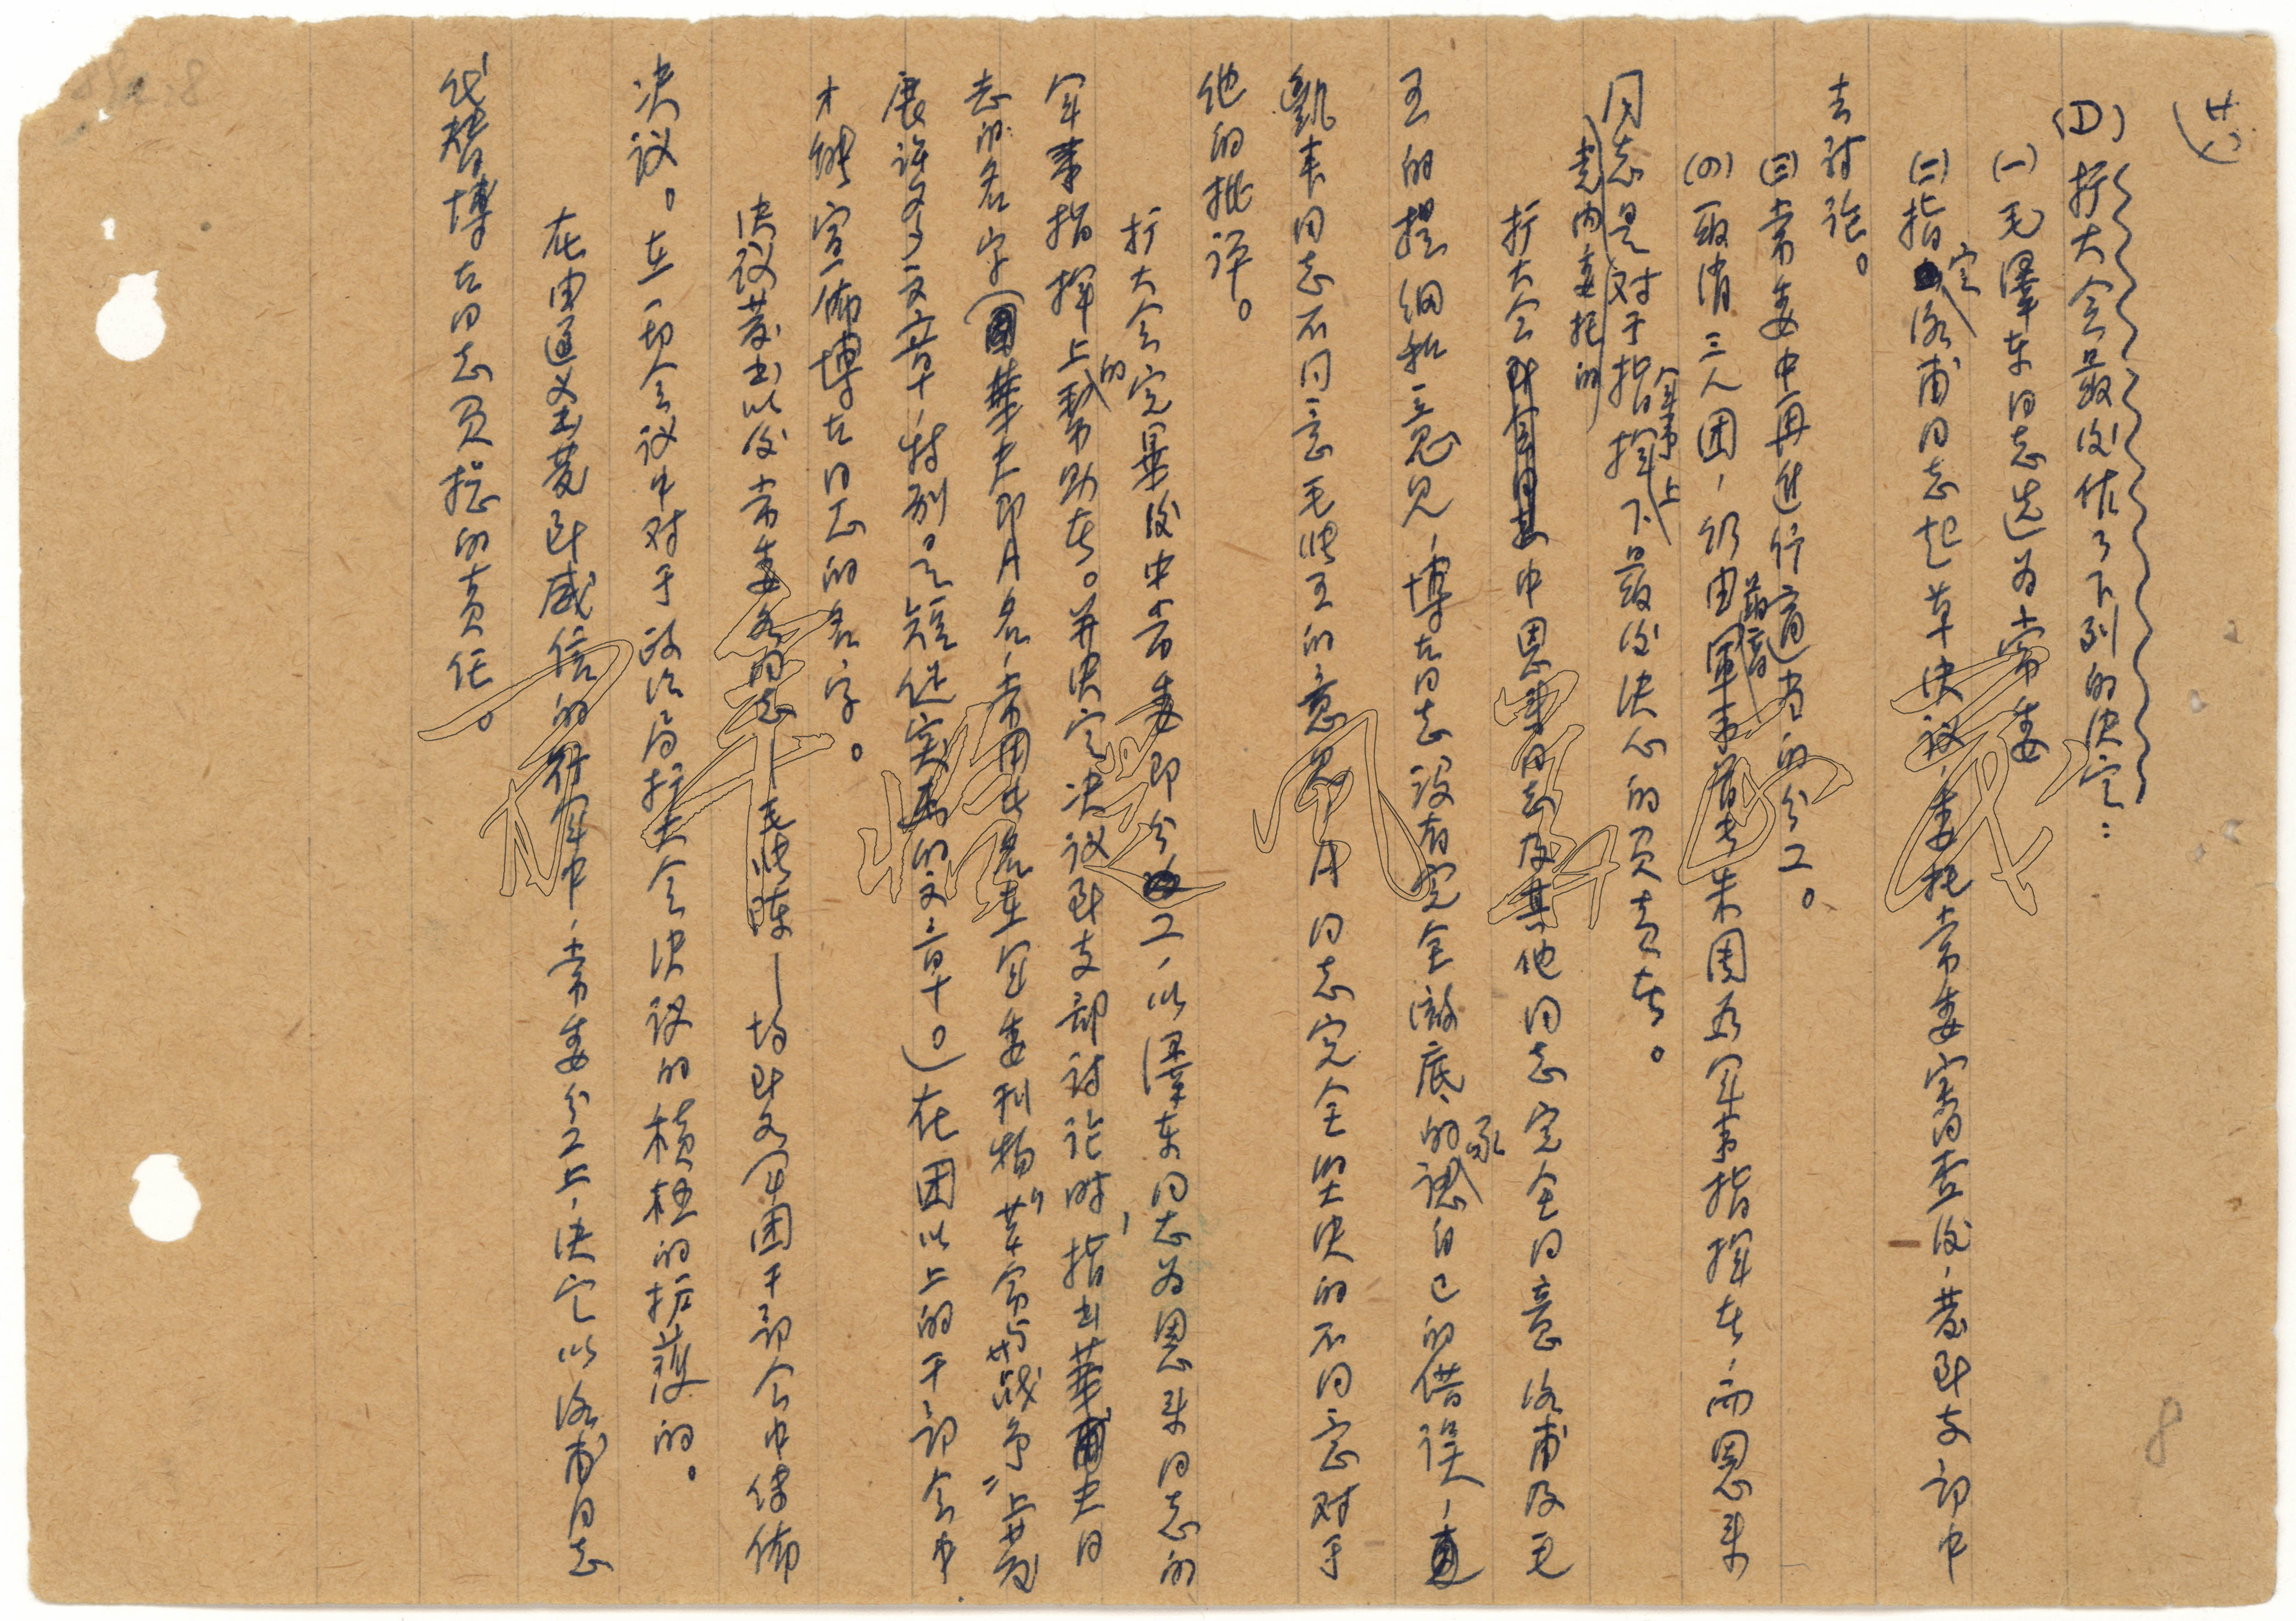 (七)
(D)扩大会最后作了下列的决定：
(一)毛泽东同志选为常委
(二)指定洛甫同志起草决议，委托常委审查后，发到支部中
去讨论。
(三)常委中再进行适当的分工。
(四)取消三人团，仍由最高军事首长朱周为军事指挥者，而恩来
同志是党内委托的对于指挥军事上下最后决心的负责者。
扩大会中恩来同志及其他同志完全同意洛甫及毛
王的提纲和意见，博古同志没有完全彻底的承认自己的错误，
凯丰同志不同意毛张王的意见，A同志完全坚决的不同意对于
他的批评。
扩大会的完毕后中常委即分工，以泽东同志为恩来同志的
军事指挥上的帮助者。并决定决议到支部讨论时，指出华夫同
志的名字（华夫即A名，常用此名在军委刊物“革命与战争”上发
展许多文章，特别是短促突击的文章。）在团以上的干部会中
才能宣布博古同志的名字。
决议发出以后常委各同志——毛张陈——均到各军团干部会中传布
决议。在一切会议中对于政治局扩大会决议的积极的拥护的。
在由遵义出发到威信的行军中，常委分工上，决定以洛甫同志
代替博古同志负总的责任。
8